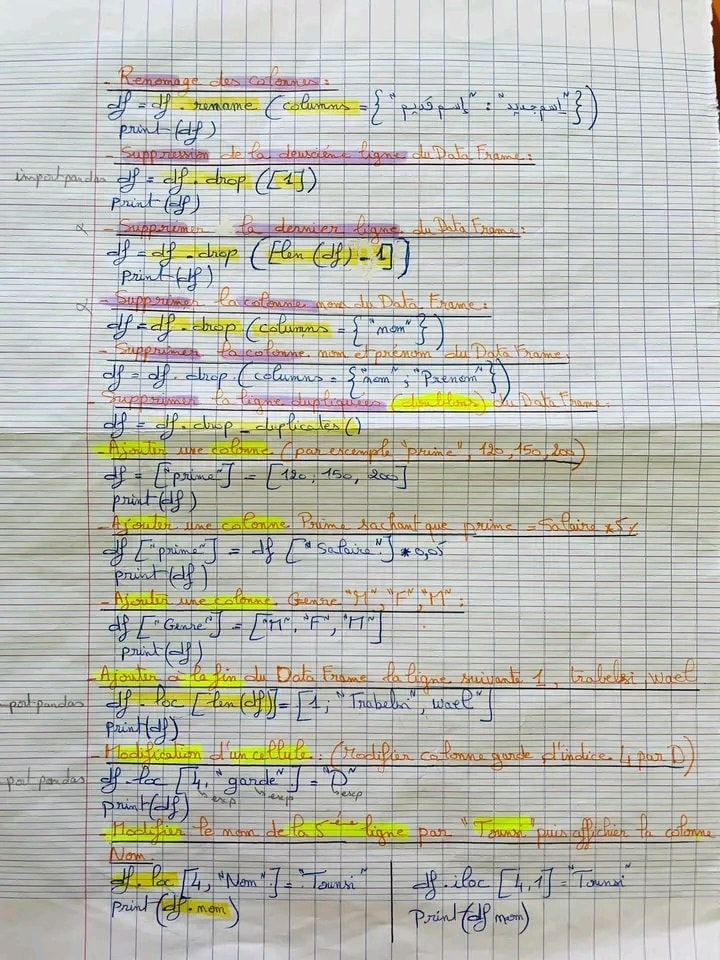 - Renomage des colonnes :
df = df.rename (columns = {"إسم قديم" : "إسم جديد"})
print (df)
- Suppression de la deuxiéme ligne du Data Frame :
import pandas df = df.drop ([1])
print (df)
- Supprimer la dernier ligne du Data Frame :
df = df.drop ([len (df) - 1])
print (df)
- Supprimer la colonne nom du Data Frame :
df = df.drop (columns = {"nom"})
- Supprimer la colonne nom et prenom du Data Frame
df = df.drop (columns = {"nom", "Prenom"})
- Supprimer la ligne dupliquées (doublons) du Data Frame.
df = df.drop_duplicates ()
- Ajouter une colonne (par escemple "prime", 120, 150, 200)
df = ["prime"] = [120, 150, 200]
print (df)
- Ajouter une colonne Prime sachant que prime = Salaire * 5%
df ["prime"] = df ["Salaire"] * 0,05
print (df)
- Ajouter une colonne Genre "M", "F", "M" :
df ["Genre"] = ["M", "F", "M"]
print (df)
- Ajouter à la fin du Data Frame la ligne suivante 1, trabelsi, wael
port pandas df.loc [len (df)] = [1, "Trabelsi", wael"]
print (df)
- Modification d'un cellule : (Modifier colonne garde d'indice 4 par D)
port pandas df.loc [4, "garde"] = "D"
exp exp exp
print (df)
- Modifier le nom de la 5éme ligne par "Tounsi" puis affichier la colonne
Nom.
df.loc [4, "Nom"] = "Tounsi"
print (df.nom)
df.iloc [4,1] = "Tounsi"
Print (df nom)